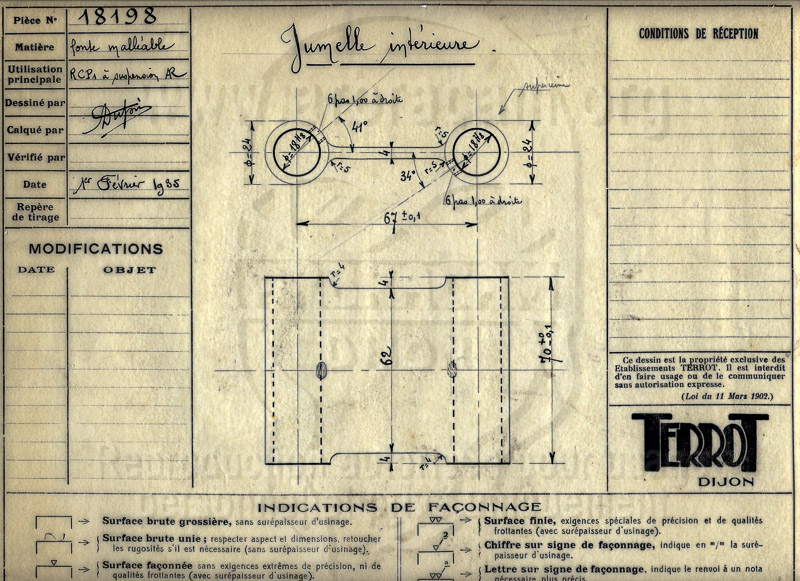 Pièce N° 18198
Matière fonte malléable
Utilisation principale RCPs à suspension AR
Dessiné par
Calqué par
Vérifié par
Date 1er Février 1935
Repère de tirage
MODIFICATIONS
DATE OBJET
Jumelle intérieure.
supérieure
6 pas 1,00 à droite
41°
r=5
φ=24
φ=18
4
r=5
34°
r=5
φ=18
φ=24
6 pas 1,00 à droite
67 ±0,1
r=4
4
62
70 +0 -0,1
4
r=4
CONDITIONS DE RÉCEPTION
Ce dessin est la propriété exclusive des
Etablissements TERROT. Il est interdit
d'en faire usage ou de le communiquer
sans autorisation expresse.
(Loi du 11 Mars 1902.)
TERROT
DIJON
INDICATIONS DE FAÇONNAGE
Surface brute grossière, sans surépaisseur d'usinage.
Surface brute unie ; respecter aspect et dimensions, retoucher
les rugosités s'il est nécessaire (sans surépaisseur d'usinage).
Surface façonnée sans exigences extrêmes de précision, ni de
qualités frottantes (avec surépaisseur d'usinage).
Surface finie, exigences spéciales de précision et de qualités
frottantes (avec surépaisseur d'usinage).
Chiffre sur signe de façonnage, indique en m/m la suré-
paisseur d'usinage.
Lettre sur signe de façonnage, indique le renvoi à un nota
nécessaire plus précis.